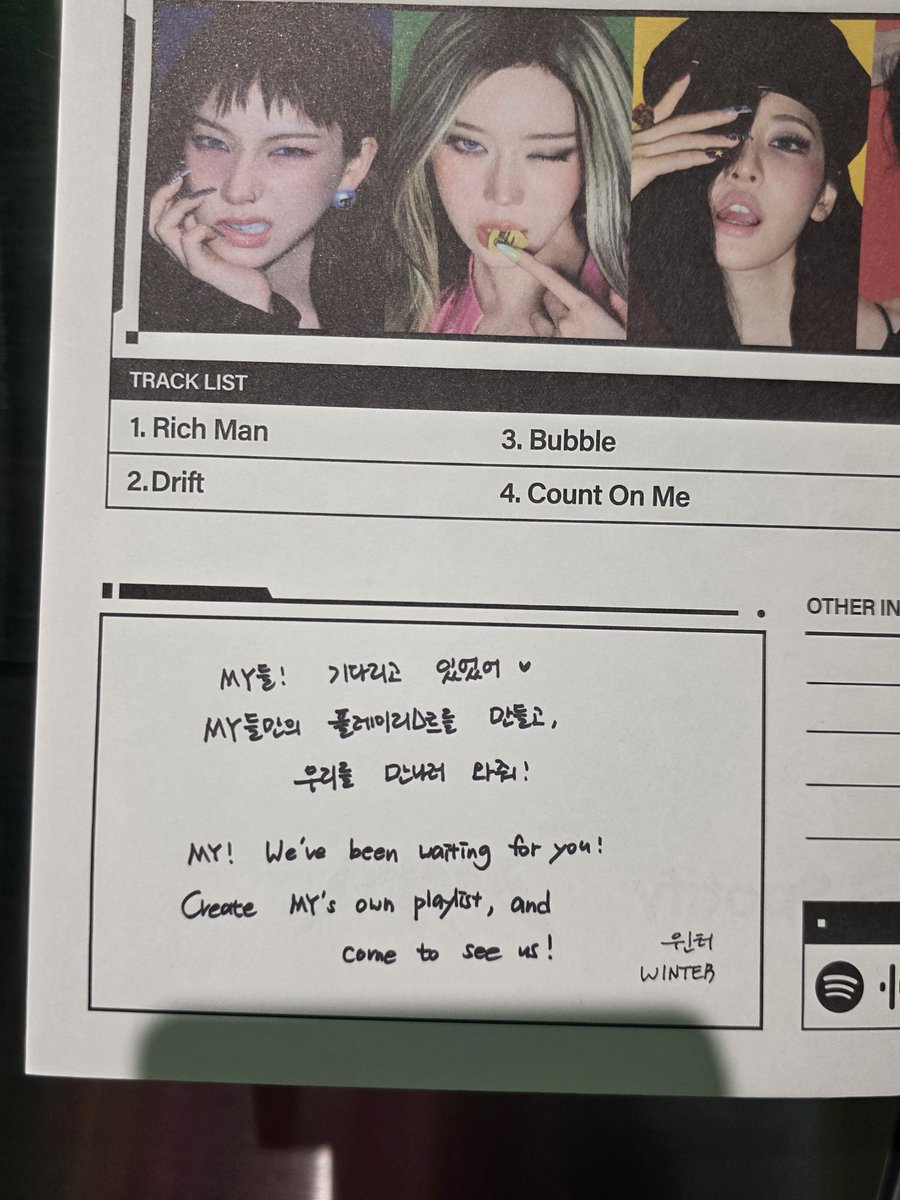 TRACK LIST
1. Rich Man
3. Bubble
2. Drift
4. Count On Me
MY들! 기다리고 있었어 ♥
MY들만의 플레이리스트를 만들고,
우리를 만나러 와줘!
MY! We've been waiting for you!
Create MY's own playlist, and
come to see us!
윈터
WINTER
OTHER IN